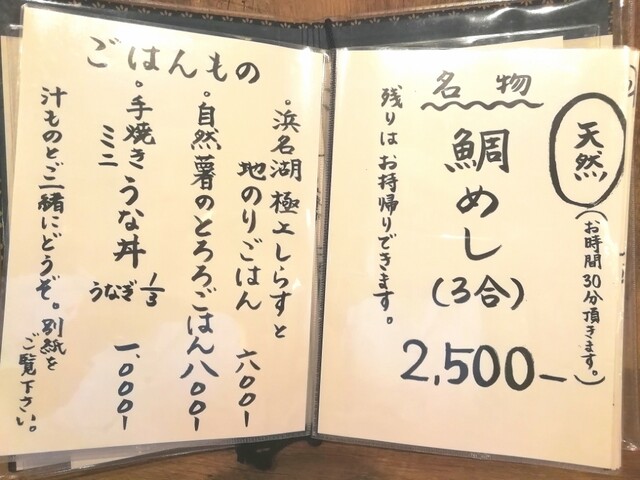 天然
(お時間30分頂きます。)
名物
鯛めし
(3合)
2,500-
残りは お持帰りできます。
ごはんもの
・浜名湖 極上しらすと
地のりごはん 六〇〇-
・自然薯のとろろごはん 八〇〇-
・手焼きミニうな丼 うなぎ1/3 一、〇〇〇-
汁ものとご一緒にどうぞ。別紙を
ご覧下さい。